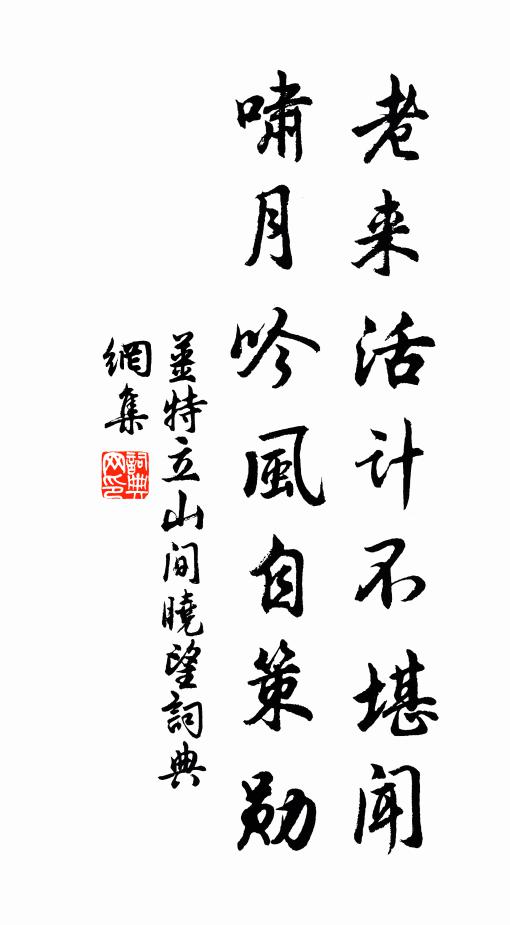 老来活计不堪闻
嘯月吟風自策勛
薑特立山间曉望詞典
網集
詞典网印